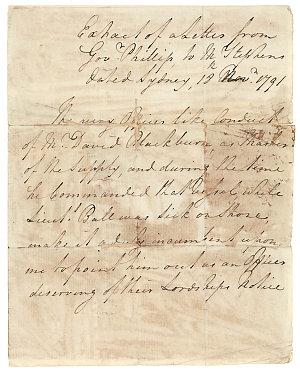 Extract of a letter from
Govr. Phillip to Mr. Stephens
dated Sydney, 12th Novr. 1791
The very Officer like Conduct
of Mr. David Blackburn as Master
of the Supply, and during the time
he Commanded that Vessel while
Lieut. Ball was sick on Shore,
make it a duty incumbent upon
me to point him out as an Officer
deserving of their Lordships Notice